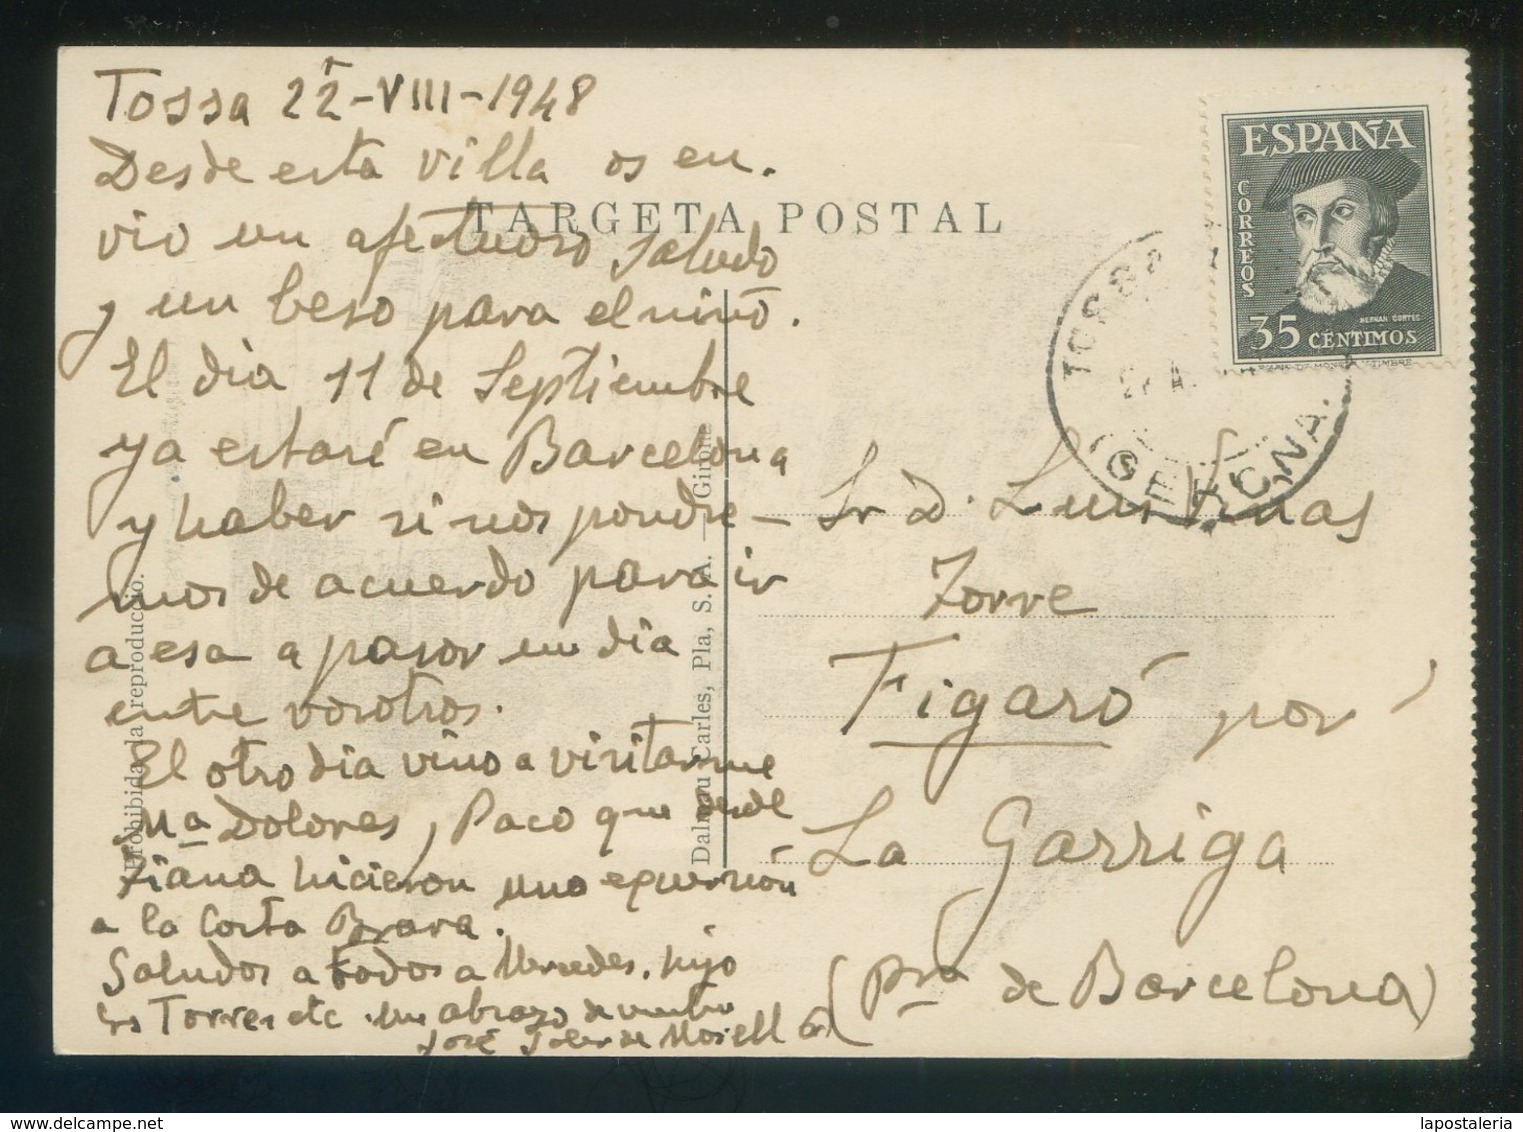 Tossa 22-VIII-1948
Desde esta villa os en-
vio un afectuoso saludo
y un beso para el niño.
El dia 11 de Septiembre
ya estaré en Barcelona
y haber si nos pondre-
mos de acuerdo para ir
a esa a pasar un dia
entre vosotros.
El otro dia vino a visitarme
Mª Dolores, Paco que desde
hicieron una excursión
a la Costa Brava.
Saludos a todos a Mercedes, hijo
Torres etc. un abrazo de vuestro
José
TARGETA POSTAL
Prohibida la reproducció.
Dalmau Carles, Pla, S. A. — Girona
ESPAÑA
CORREOS
HERNAN CORTES
35 CENTIMOS
TOSSA
GERONA.
Sr D. Luis Viñas
Torre
Figaró por
La Garriga
(Prª de Barcelona)
lapostaleria.com
lapostaleria